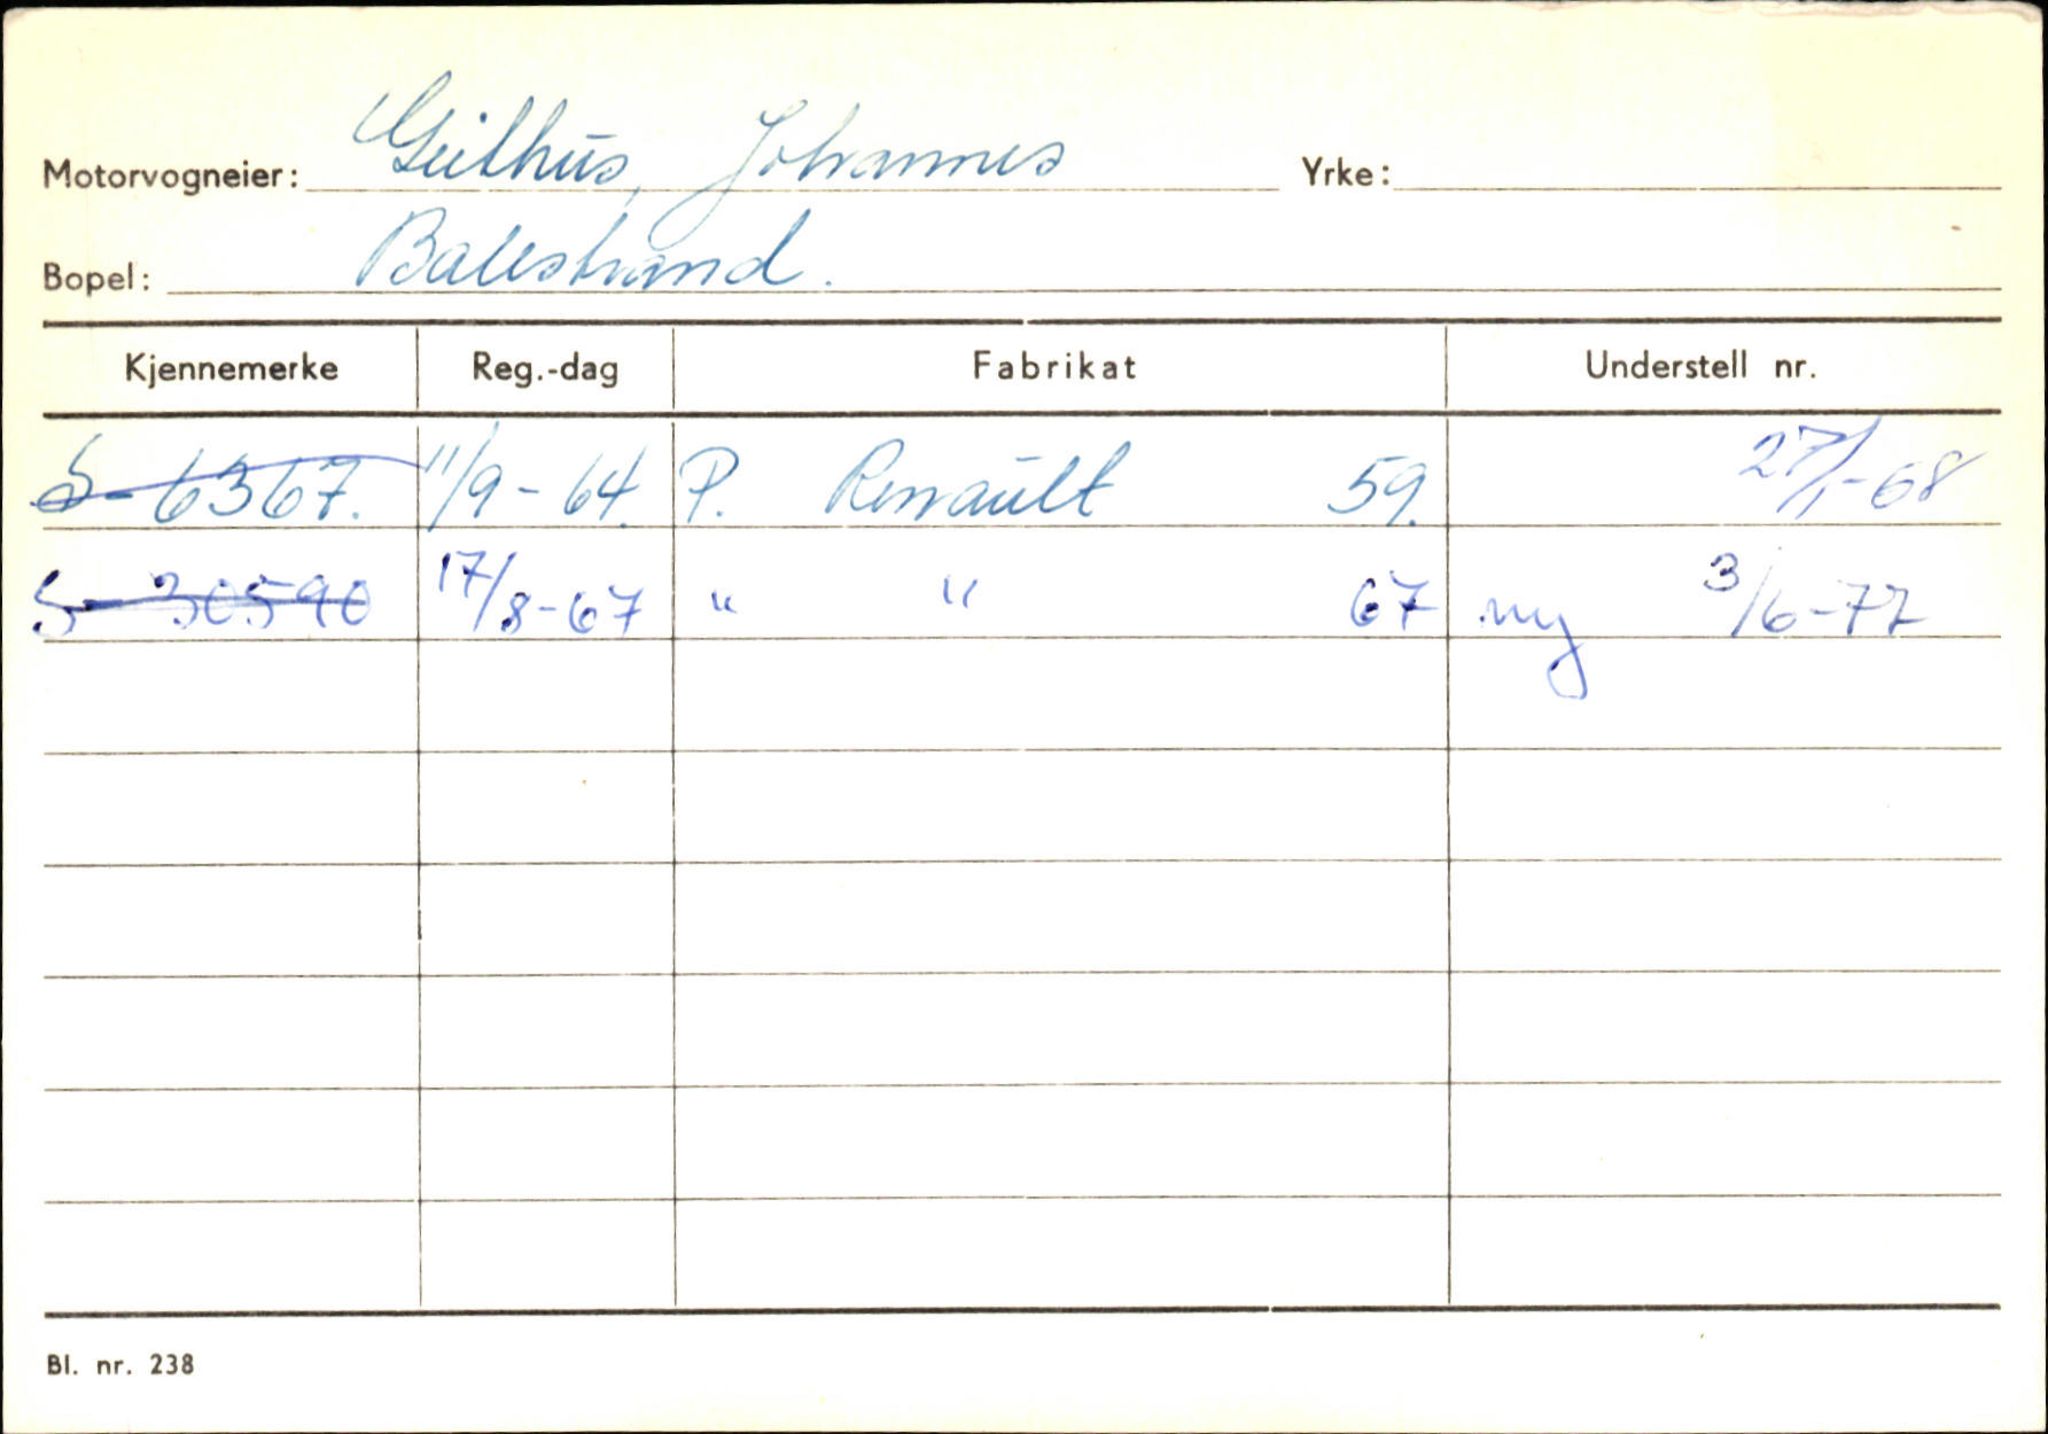 Motorvogneier: Geithus, Johannes Yrke:
Bopel: Balestrand.
Kjennemerke Reg.-dag Fabrikat Understell nr.
S-6367. 11/9-64. P. Renault 59. 27/1-68
S-30590 17/8-67 " " 67 ny 3/6-77
Bl. nr. 238